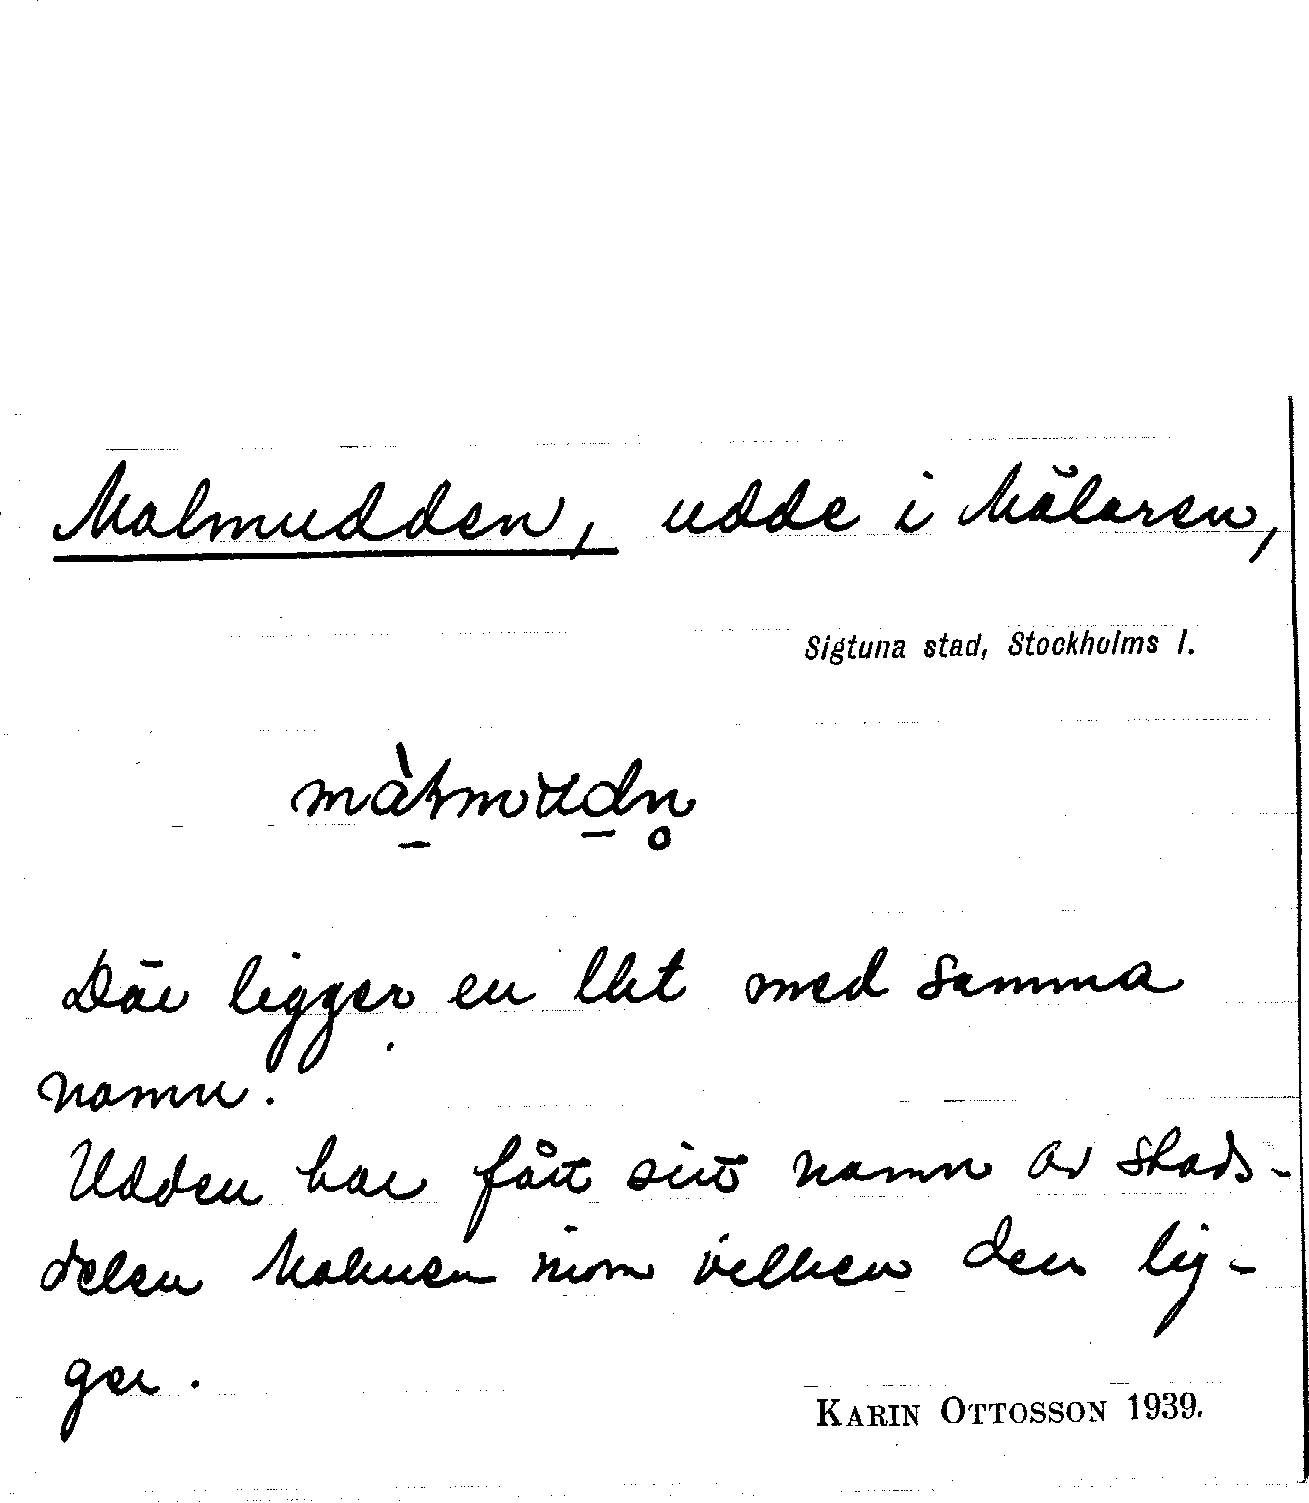 Malmudden, udde i Mälaren,
Sigtuna stad, Stockholms l.
Där ligger en lht med samma
namn.
Udden har fått sitt namn av stads-
delen Malmen inom vilken den lig-
ger.
KARIN OTTOSSON 1939.